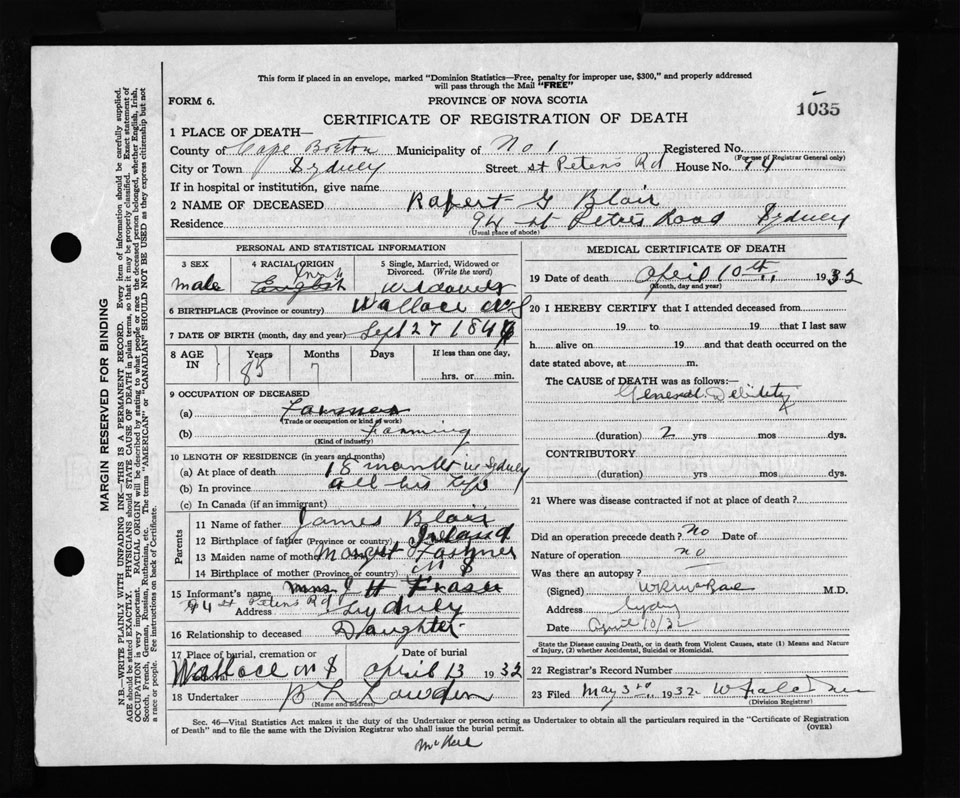 This form if placed in an envelope, marked "Dominion Statistics—Free, penalty for improper use, $300," and properly addressed
will pass through the Mail "FREE"
FORM 6.
PROVINCE OF NOVA SCOTIA
1035
CERTIFICATE OF REGISTRATION OF DEATH
1 PLACE OF DEATH—
County of Cape Breton Municipality of No 1 Registered No.
(For use of Registrar General only)
City or Town Sydney Street St Peters Rd House No. 94
If in hospital or institution, give name
2 NAME OF DECEASED Rupert G Blair
Residence 94 St Peters Road Sydney
(Usual place of abode)
PERSONAL AND STATISTICAL INFORMATION
3 SEX
male
4 RACIAL ORIGIN
English
5 Single, Married, Widowed or
Divorced. (Write the word)
6 BIRTHPLACE (Province or country) Wallace NS
7 DATE OF BIRTH (month, day and year) Sept 27 184
8 AGE IN
Years 85
Months 7
Days
If less than one day,
hrs. or min.
9 OCCUPATION OF DECEASED
(a) Farmer
(Trade or occupation or kind of work)
(b) Farming
(Kind of industry)
10 LENGTH OF RESIDENCE (in years and months)
(a) At place of death 18 months in Sydney
(b) In province all his life
(c) In Canada (if an immigrant)
Parents
11 Name of father James Blair
12 Birthplace of father (Province or country) Ireland
13 Maiden name of mother
14 Birthplace of mother (Province or country) N S
15 Informant's name Mrs J H Fraser
94 St Peters Rd
Address Sydney
16 Relationship to deceased Daughter
17 Place of burial, cremation or Date of burial
Wallace N S April 13 1932
18 Undertaker
(Name and address)
MEDICAL CERTIFICATE OF DEATH
19 Date of death April 10th, 1932
(Month, day and year)
20 I HEREBY CERTIFY that I attended deceased from
19 to 19 that I last saw
h alive on 19 and that death occurred on the
date stated above, at m.
The CAUSE of DEATH was as follows:
General Debility
(duration) 2 yrs mos dys.
CONTRIBUTORY
(duration) yrs mos dys.
21 Where was disease contracted if not at place of death?
Did an operation precede death? No Date of
Nature of operation no
Was there an autopsy?
(Signed) M.D.
Address Sydney
Date April 10/32
State the Disease causing Death, or in death from Violent Causes, state (1) Means and Nature
of Injury, (2) whether Accidental, Suicidal or Homicidal.
22 Registrar's Record Number
23 Filed May 3rd, 1932
(Division Registrar)
Sec. 46—Vital Statistics Act makes it the duty of the Undertaker or person acting as Undertaker to obtain all the particulars required in the "Certificate of Registration
of Death" and to file the same with the Division Registrar who shall issue the burial permit.
(OVER)
MARGIN RESERVED FOR BINDING
N.B.—WRITE PLAINLY WITH UNFADING INK—THIS IS A PERMANENT RECORD. Every item of information should be carefully supplied.
AGE should be stated EXACTLY. PHYSICIANS should STATE CAUSE OF DEATH in plain terms, so that it may be properly classified. Exact statement of
OCCUPATION is very important. RACIAL ORIGIN will be described by stating to what people or race the deceased person belonged, whether English, Irish,
Scotch, French, German, Russian, Ruthenian, etc. The terms "AMERICAN" or "CANADIAN" SHOULD NOT BE USED as they express citizenship but not
a race or people. See instructions on back of Certificate.